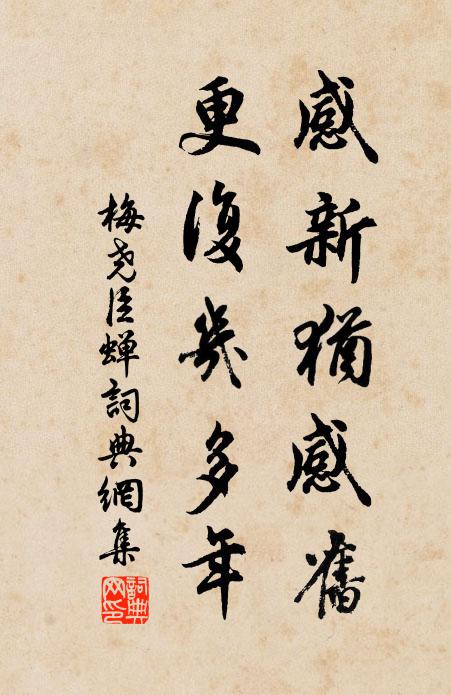 感新猶感舊
更復幾多年
梅堯臣蟬詞典網集
詞典
网印